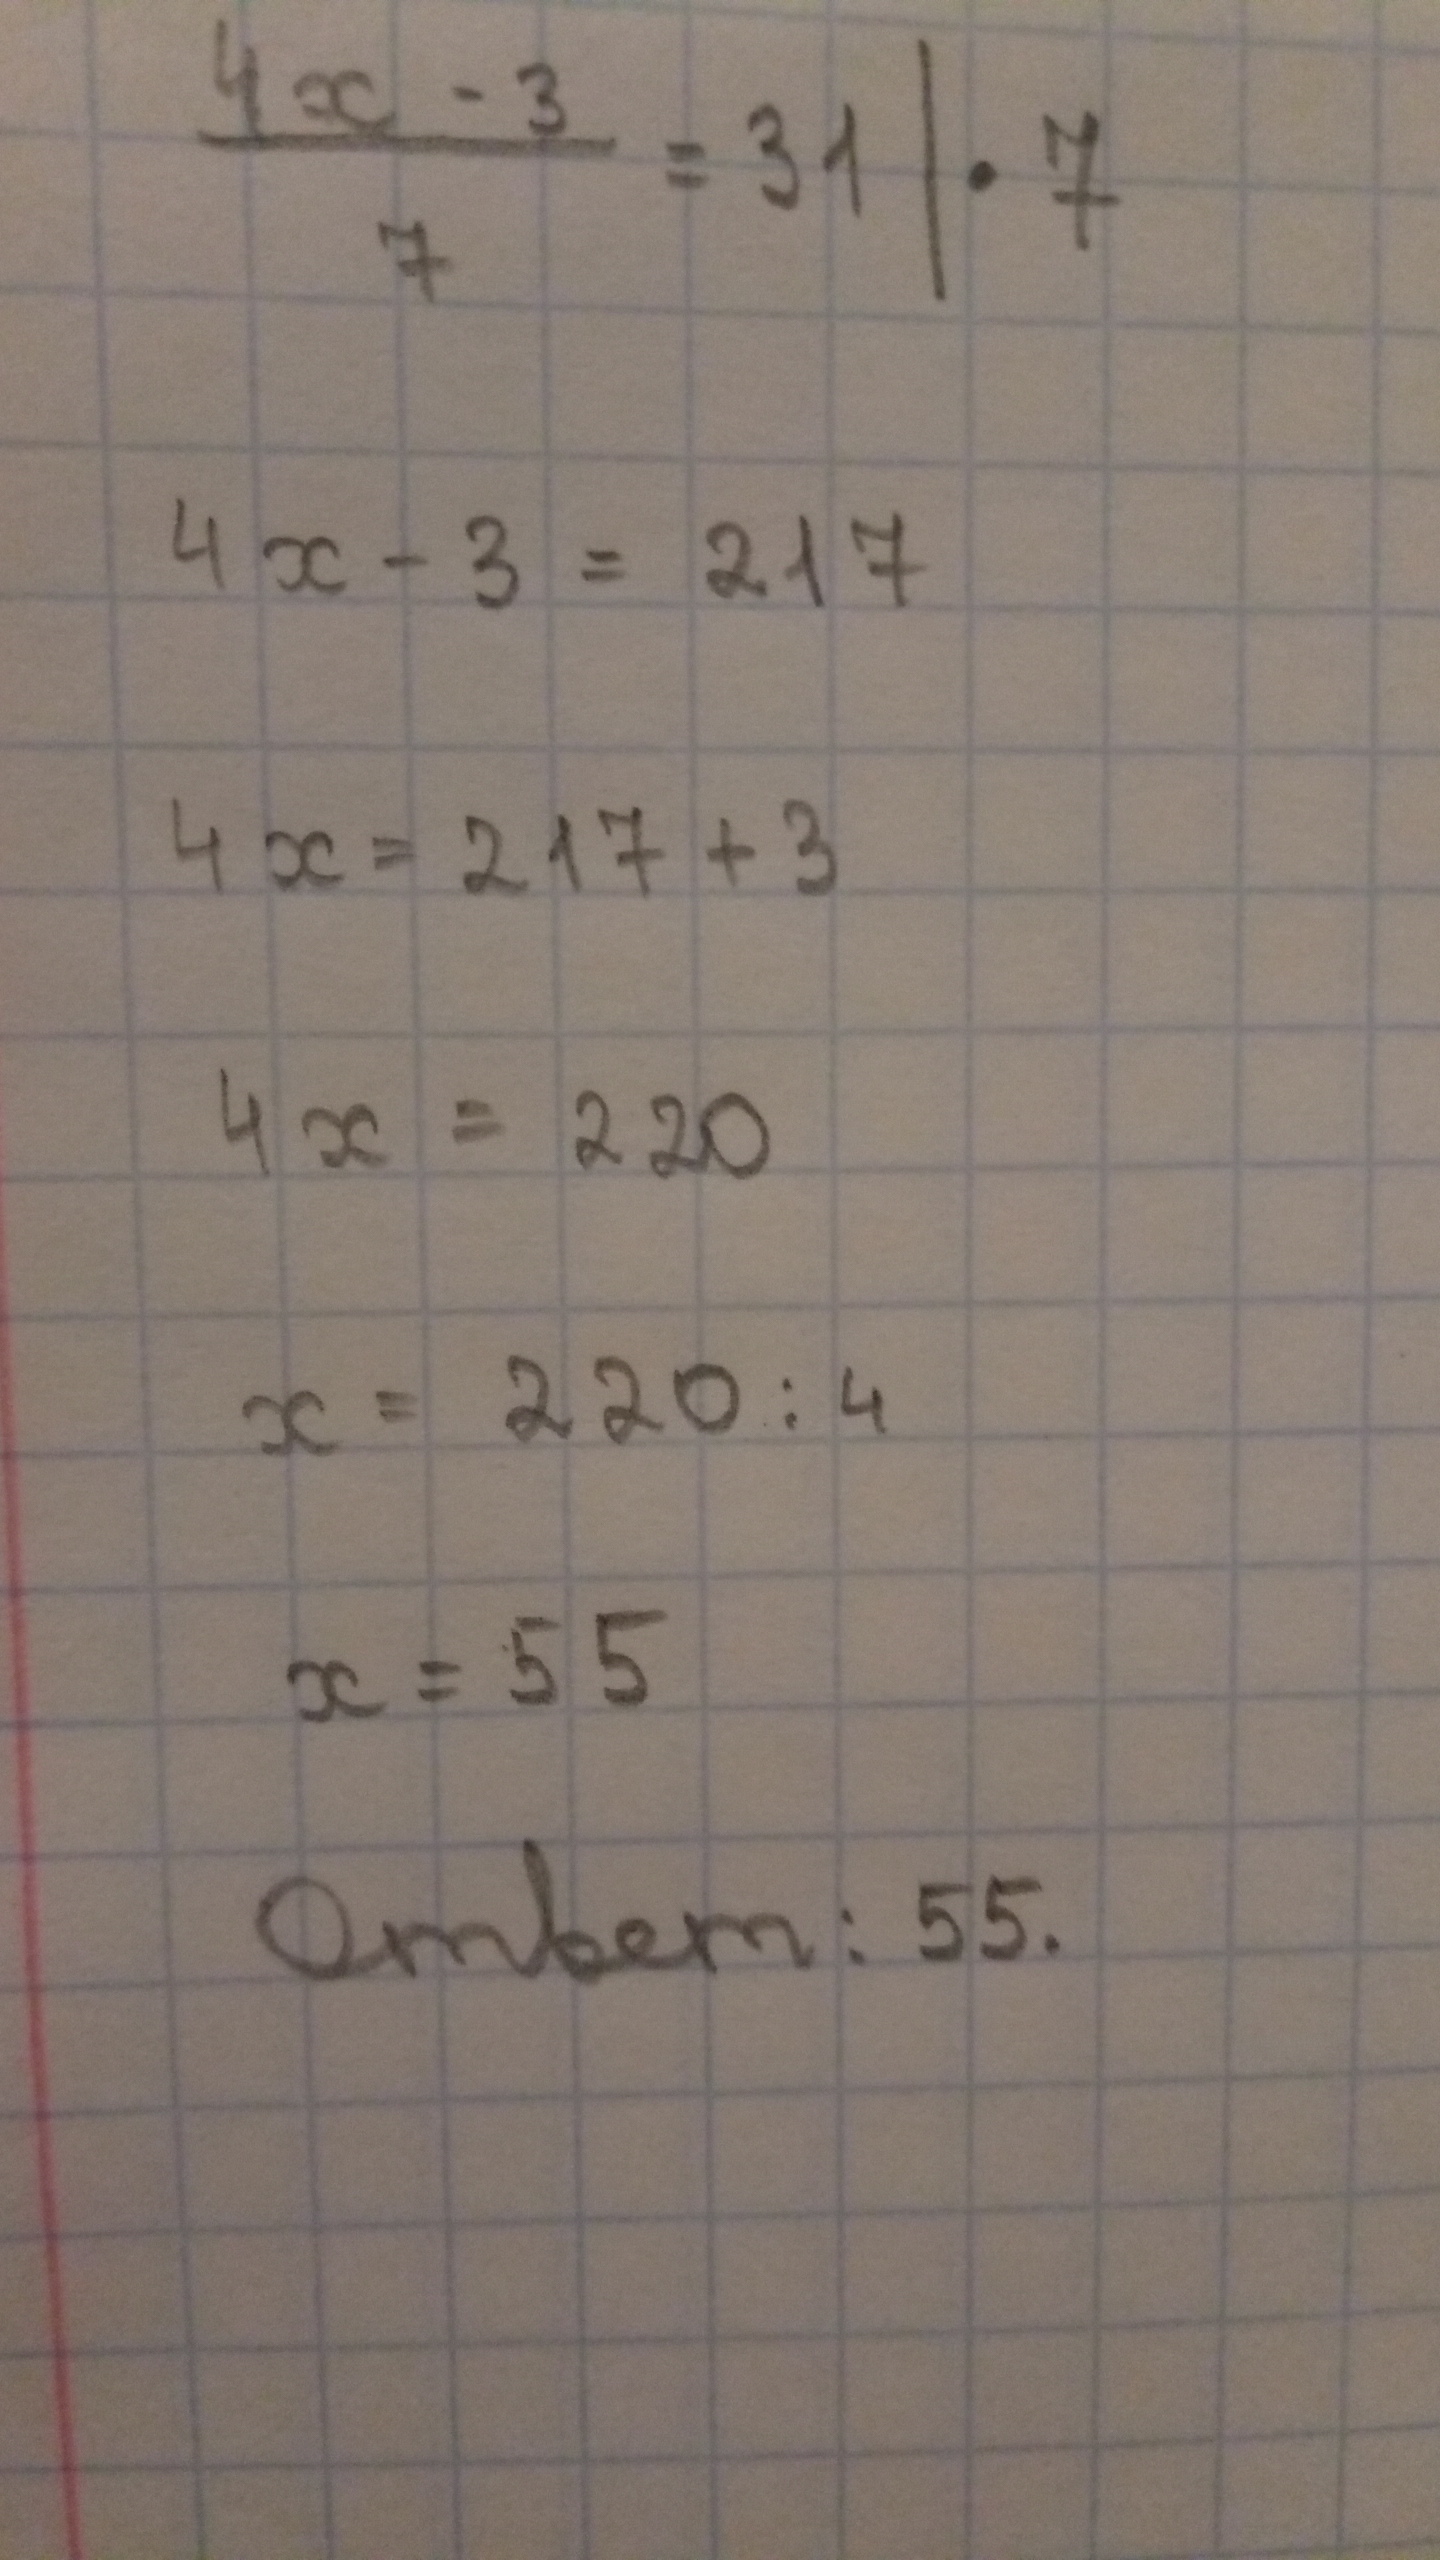 4x - 3 / 7 = 31 | · 7
4x - 3 = 217
4x = 217 + 3
4x = 220
x = 220 : 4
x = 55
Ответ: 55.